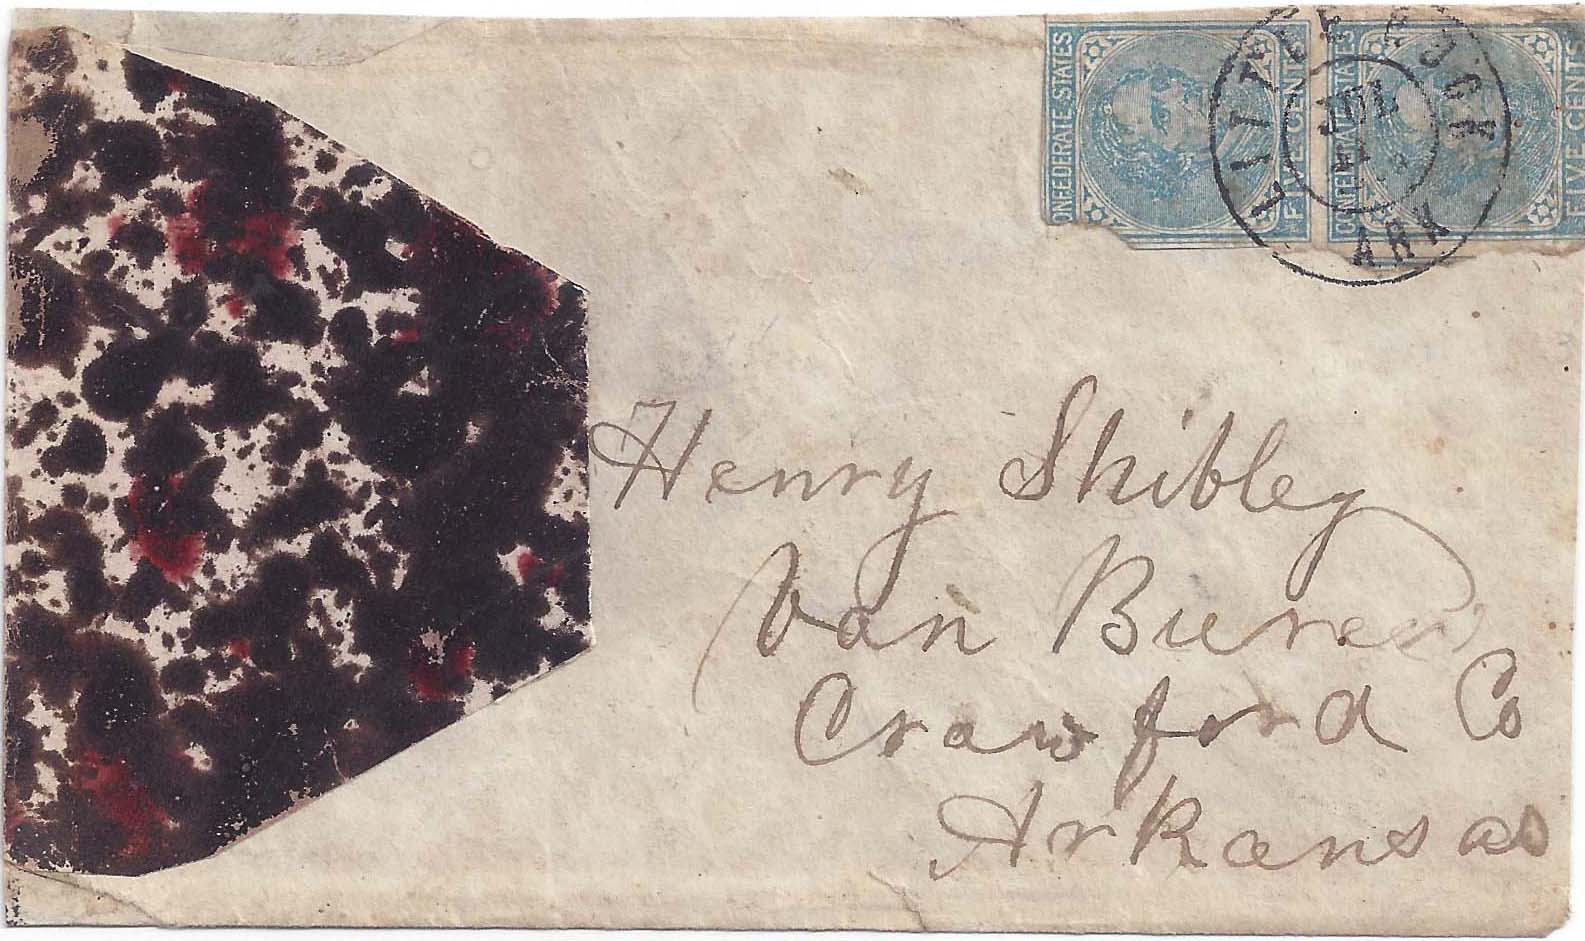 CONFEDERATE STATES
FIVE CENTS
CONFEDERATE STATES
FIVE CENTS
LITTLE ROCK
JUL
ARK
Henry Shibley
Van Buren
Crawford Co
Arkansas